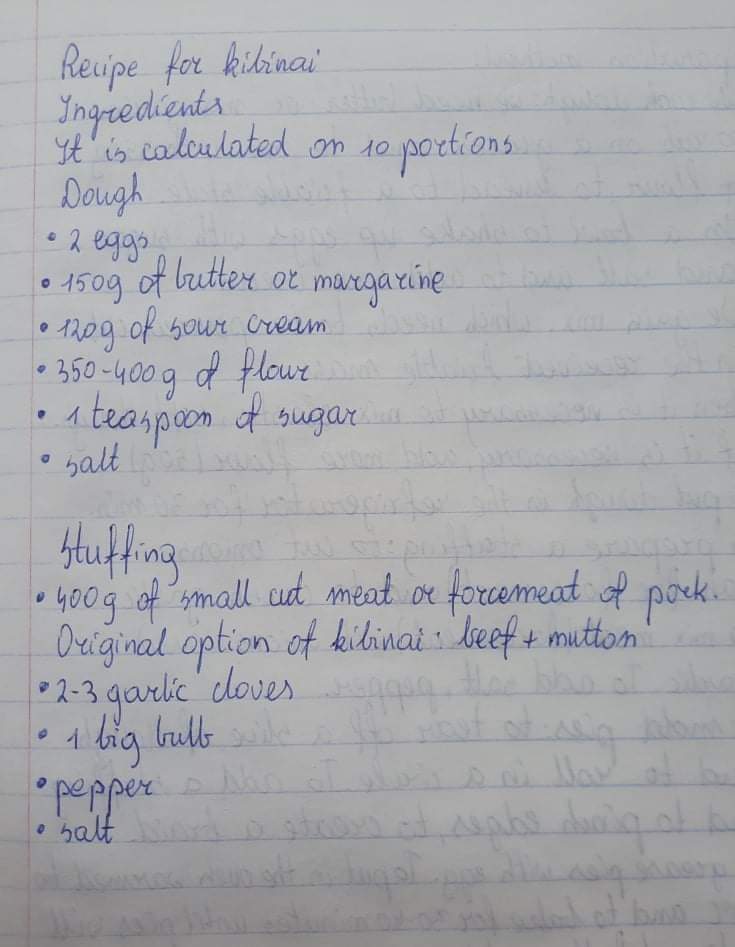 Recipe for kibinai
Ingredients
It is calculated on 10 portions
Dough
• 2 eggs
• 150g of butter or margarine
• 120g of sour cream
• 350-400g of flour
• 1 teaspoon of sugar
• salt
Stuffing
• 400g of small cut meat or forcemeat of pork.
Original option of kibinai: beef + mutton
• 2-3 garlic cloves
• 1 big bulb
• pepper
• salt